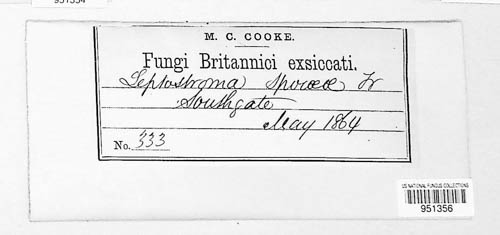 951354
M. C. COOKE.
Fungi Britannici exsiccati.
Leptostroma Spiræa Fr
Southgate
May 1864
No. 333
US NATIONAL FUNGUS COLLECTIONS
951356